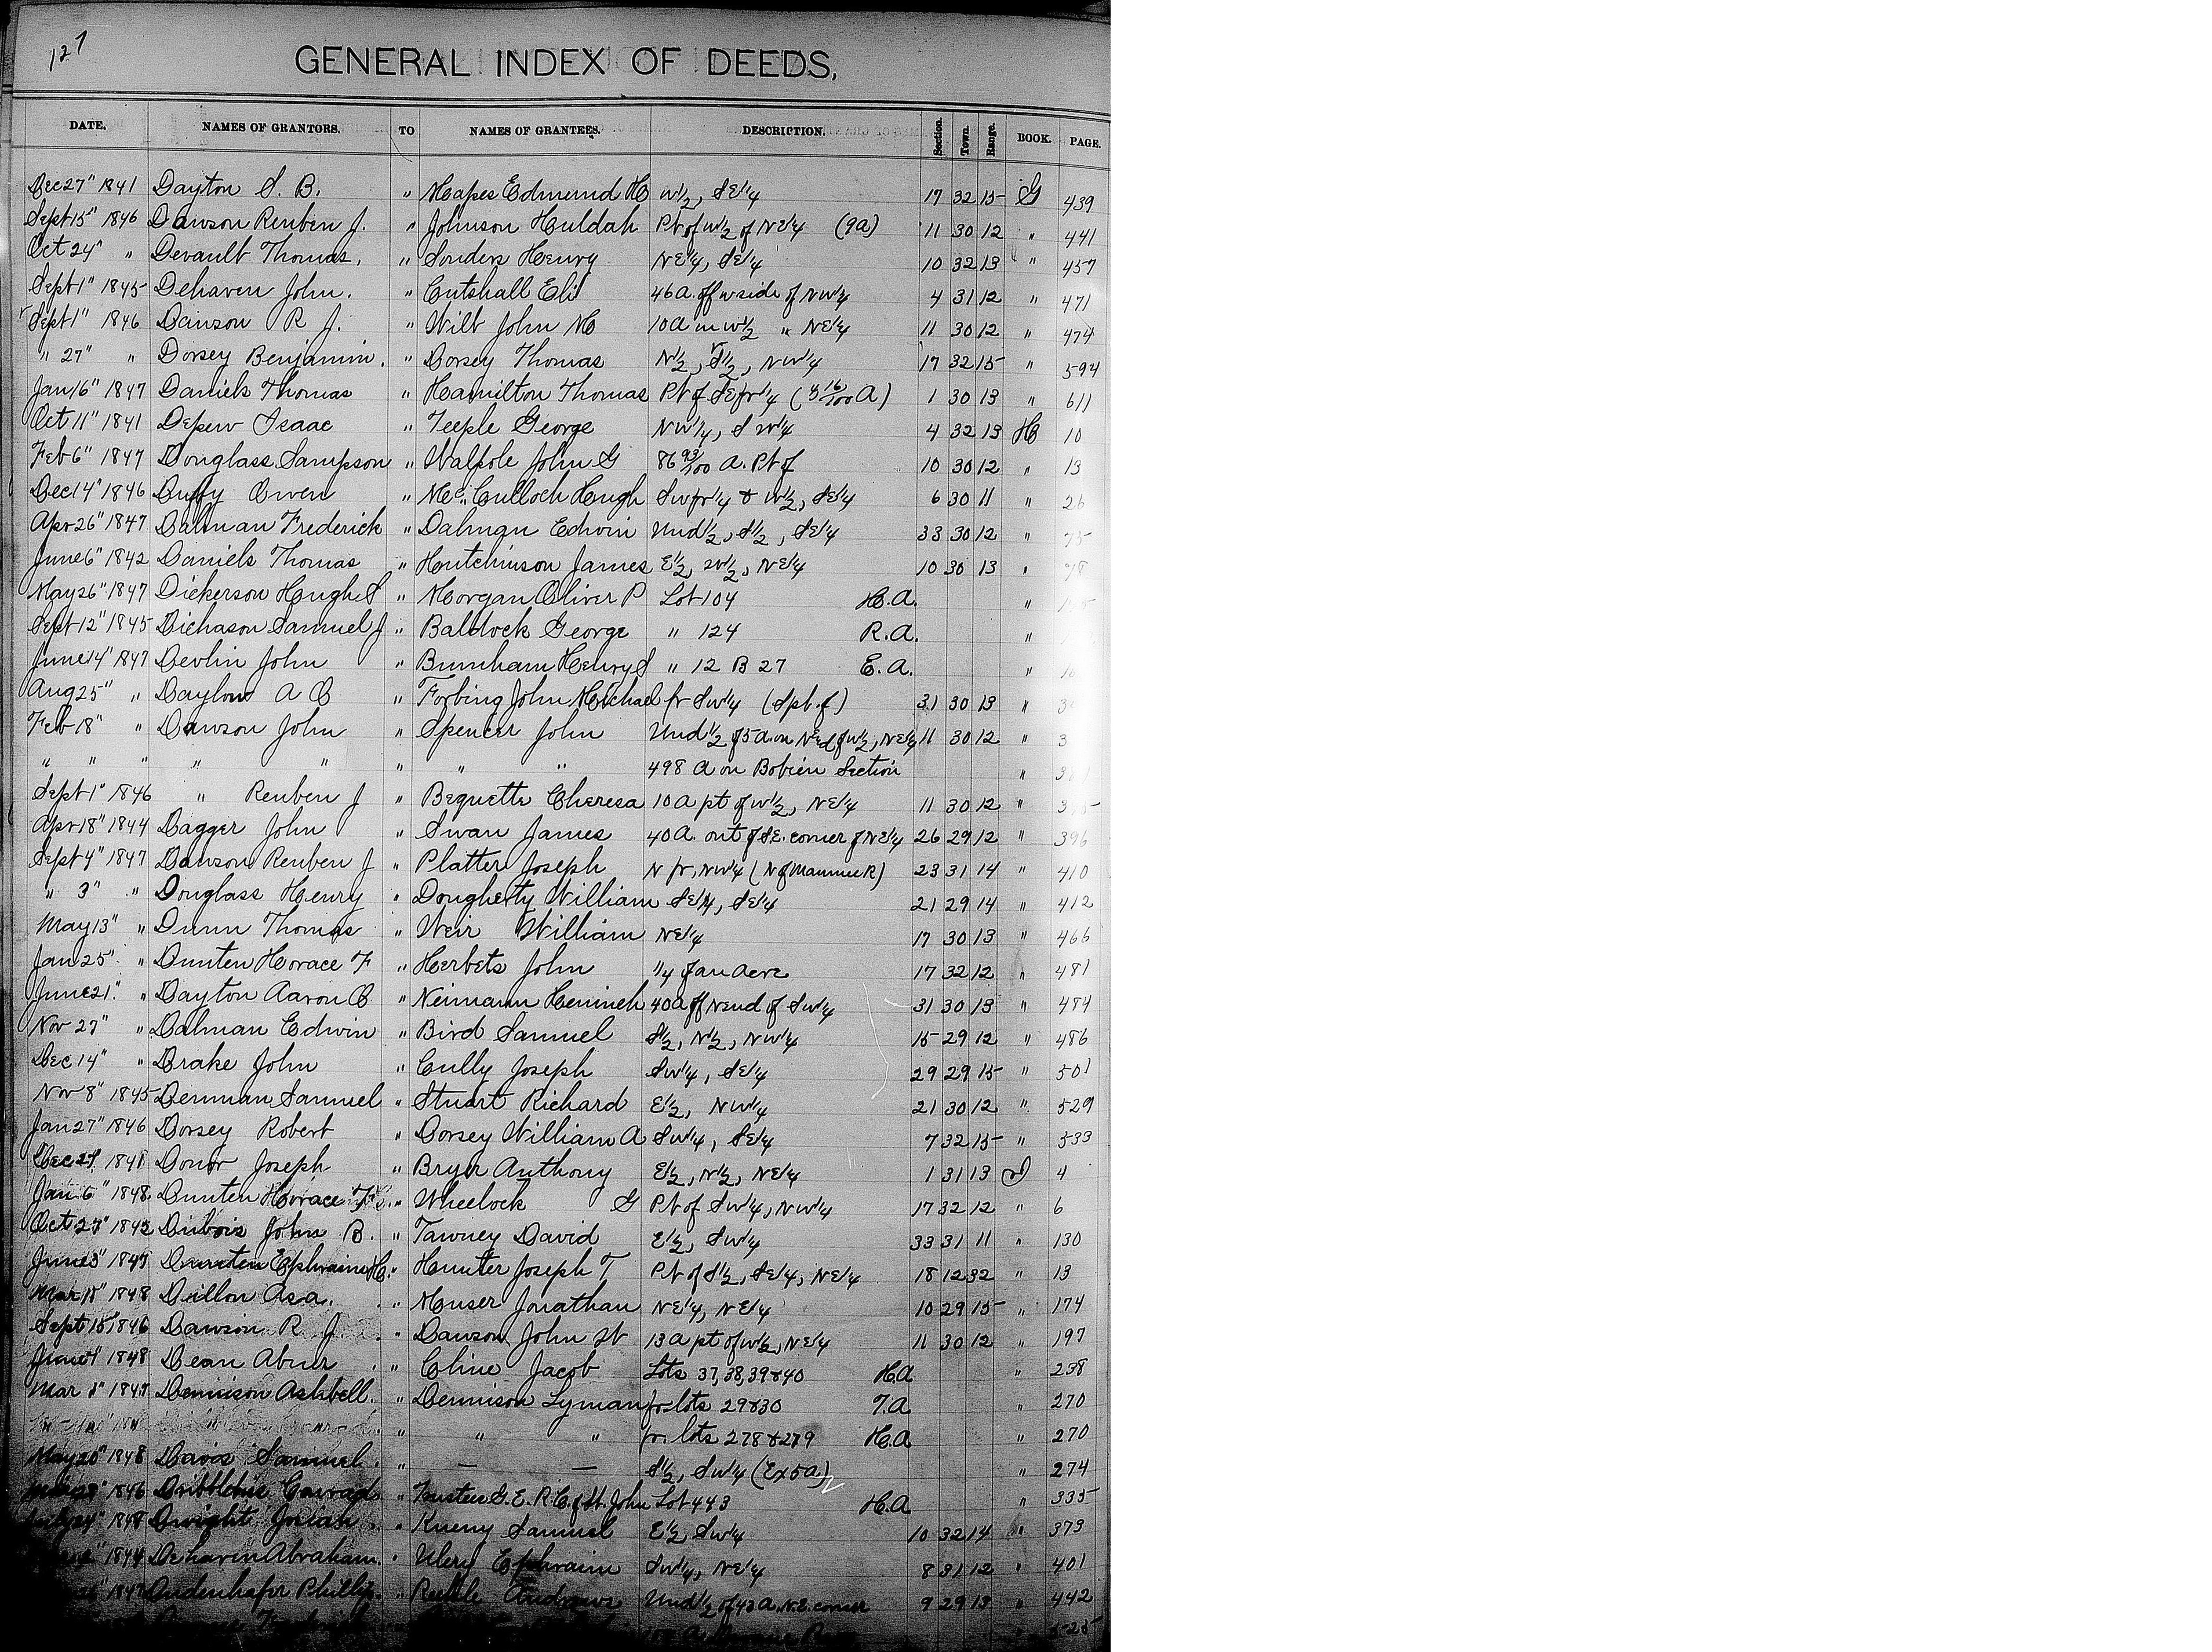 127
GENERAL INDEX OF DEEDS.
DATE. NAMES OF GRANTORS. TO NAMES OF GRANTEES. DESCRIPTION. Section. Town. Range. BOOK. PAGE.
Dec 27" 1841 Dayton S. B. " Mapes Edmund H W½, SE¼ 17 32 15 G 439
Sept 15" 1846 Dawson Reuben J. " Johnson Huldah Pt of W½ of NE¼ (9a) 11 30 12 " 441
Oct 24" " Devault Thomas. " Souders Henry NE¼, SE¼ 10 32 13 " 457
Sept 1" 1845 Dehaven John. " Cutshall Eli 46 a. off w side of NW¼ 4 31 12 " 471
Sept 1" 1846 Dawson R J. " Wilt John M 10 a in W½ " NE¼ 11 30 12 " 474
" 27" " Dorsey Benjamin. " Dorsey Thomas N½, S½, NW¼ 17 32 15 " 594
Jan 16" 1847 Daniels Thomas " Hamilton Thomas Pt of SE fr ¼ ( 16/100 A) 1 30 13 " 611
Oct 11" 1841 Depew Isaac " Teeple George NW¼, SW¼ 4 32 13 H 10
Feb 6" 1847 Douglass Sampson " Walpole John G 86 93/100 a. Pt of 10 30 12 " 13
Dec 14" 1846 Duffy Owen " Mc. Culloch Hugh SW fr ¼ & W½, SE¼ 6 30 11 " 26
Apr 26" 1847 Dalman Frederick " Dalman Edwin Und ½, S½, SE¼ 33 30 12 " 75
June 6" 1842 Daniels Thomas " Hutchinson James E½, W½, NE¼ 10 30 13 " 78
May 26" 1847 Dickerson Hugh S " Morgan Oliver P Lot 104 H.A. "
Sept 12" 1845 Dichason Samuel J " Baldock George " 124 R.A. "
June 14" 1847 Devlin John " Burnham Henry S " 12 B 27 E.A. "
Aug 25" " Dayton A B " Forbing John Michael fr SW¼ (S pt of) 31 30 13 "
Feb 18" " Dawson John " Spencer John Und ½ of 5 a. on N End of W½, NE¼ 11 30 12 " 3
" " " " " " " " 498 A on Bobien Section "
Sept 1" 1846 " Reuben J " Bequette Theresa 10 a pt of W½, NE¼ 11 30 12 "
Apr 18" 1844 Dagger John " Swan James 40 A. out of S.E. corner of NE¼ 26 29 12 " 396
Sept 4" 1847 Dawson Reuben J " Platter Joseph N fr, NW¼ (N of Maumee R) 23 31 14 " 410
" 3" " Douglass Henry " Dougherty William SE¼, SE¼ 21 29 14 " 412
May 13" " Dunn Thomas " Weir William NE¼ 17 30 13 " 466
Jan 25" " Dunten Horace F " Herbets John ¼ of an acre 17 32 12 " 481
June 21" " Dayton Aaron B " Neimann Heninch 40 a off N end of SW¼ 31 30 13 " 484
Nov 27" " Dalman Edwin " Bird Samuel S½, N½, NW¼ 15 29 12 " 486
Dec 14" " Drake John " Cully Joseph SW¼, SE¼ 29 29 15 " 501
Nov 8" 1845 Denman Samuel " Stuart Richard E½, NW¼ 21 30 12 " 529
Jan 27" 1846 Dorsey Robert " Dorsey William A SW¼, SE¼ 7 32 15 " 533
Dec Donor Joseph " Bryer Anthony E½, N½, NE¼ 1 31 13 I 4
Jan 6" 1848 Dunten Horace F. " Wheelock G Pt of SW¼, NW¼ 17 32 12 " 6
Oct Dubois John B. " Tawney David E½, SW¼ 33 31 11 " 130
June 3" Dunten Ephraim H. " Hunter Joseph T Pt of S½, SE¼, NE¼ 18 12 32 " 13
Mar 1848 Dillon Asa. " Muser Jonathan NE¼, NE¼ 10 29 15 " 174
Sept 15" 1846 Dawson R J " Dawson John W 13 a pt of W½, NE¼ 11 30 12 " 197
June 1848 Dean Abner " Cline Jacob Lots 37, 38, 39 & 40 H.A " 238
Mar Dennison Ashbell. " Dennison Lyman fr lots 29 & 30 T.A " 270
" " " fr. lots 278 & 279 H.A " 270
May 20" 1848 Davos Samuel. " — — S½, SW¼ (Ex 5 a) " 274
1846 Conrad " Trustees G. E. R. C. of St. John Lot 443 H.A " 335
1848 Dwight Josiah " Kueny Samuel E½, SW¼ 10 32 14 " 373
1844 Deharin Abraham. " Ulery Ephraim SW¼, NE¼ 8 31 12 " 401
1847 Phillip. " Andrews Und ½ of 43 A. N.E. corner 9 29 13 " 442
525